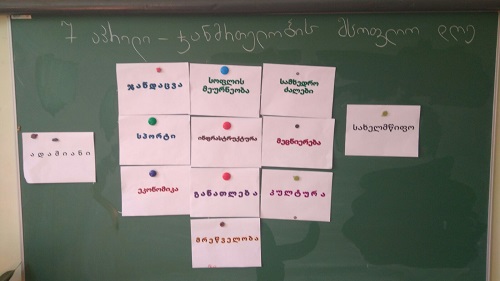 7 აპრილი - ჯანმრთელობის მსოფლიო დღე
ჯანდაცვა
სოფლის
მეურნეობა
სამხედრო
ძალები
სახელმწიფო
სპორტი
ინფრასტრუქტურა
მეცნიერება
ადამიანი
ეკონომიკა
განათლება
კულტურა
მრეწველობა